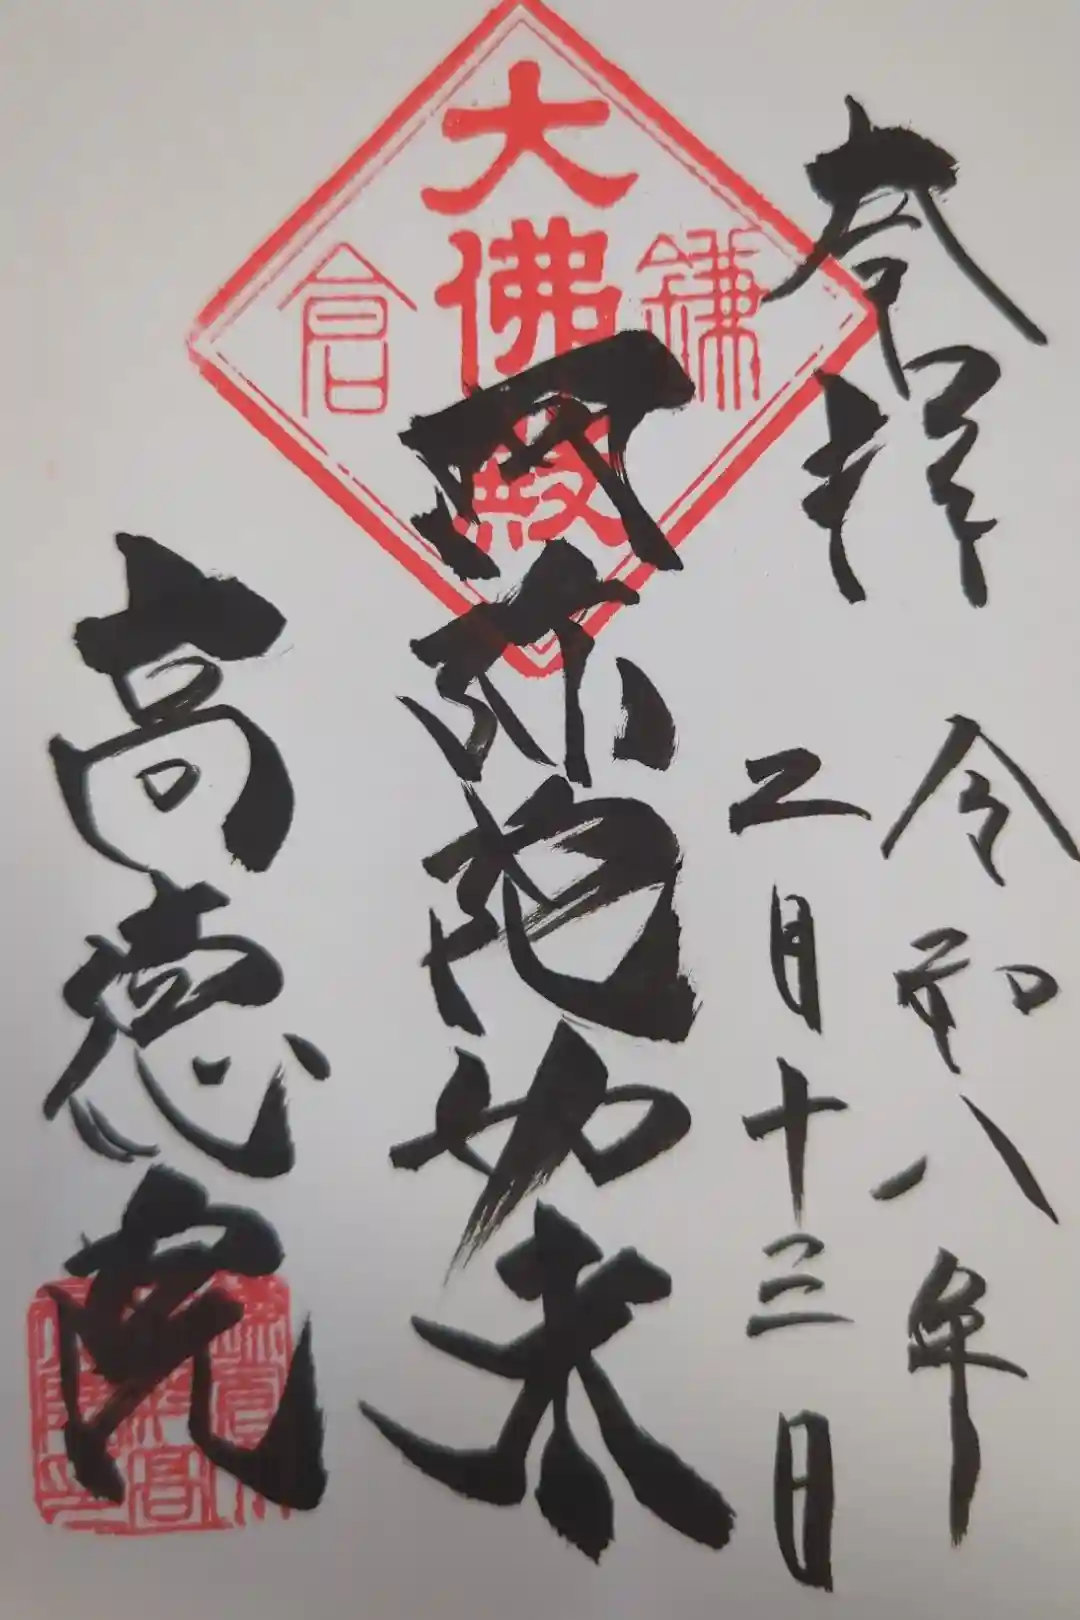 奉拝
令和八年
二月十三日
鎌倉
大佛殿
阿弥陀如来
高徳院